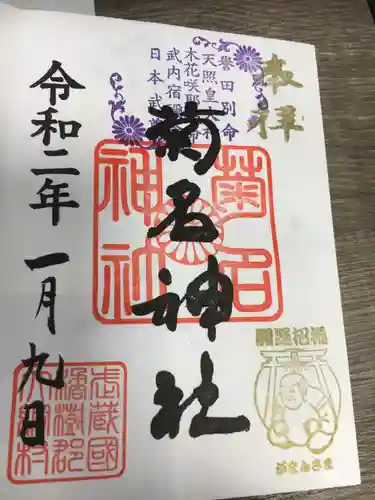 奉拝
誉田別命
天照皇大神
木花咲耶姫命
武内宿禰命
日本武尊
菊名神社
菊名
神社
令和二年一月九日
開運招福
がまんさま
武蔵國
橘樹郡